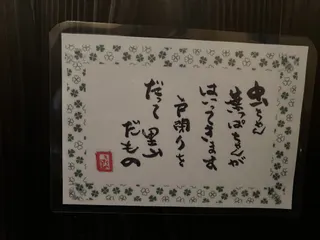 虫さん
葉っぱさんが
はいってきます
戸閉りを
だって里山
だもの